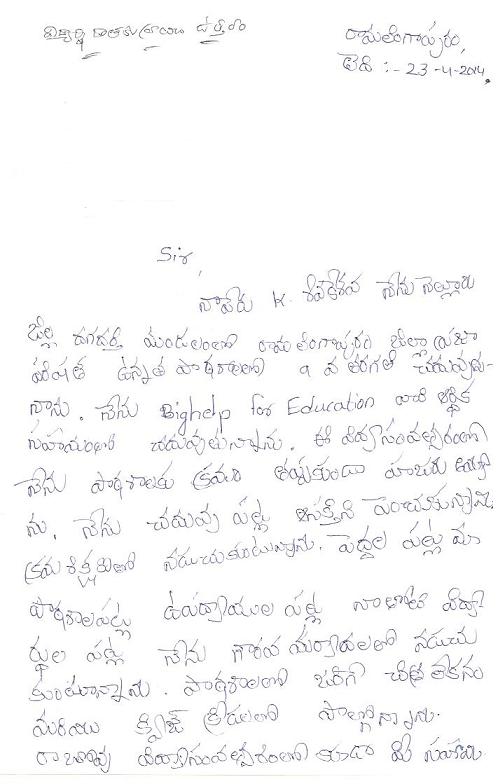 విద్యార్థి దాతకు వ్రాయు ఉత్తరం
రామలింగాపురం,
తేది :- 23-4-2014.
Sir,
నాపేరు K. శివకేశవ నేను నెల్లూరు
జిల్లా దగదర్తి మండలంలో రామలింగాపురం జిల్లా ప్రజా
పరిషత్ ఉన్నత పాఠశాలలో 9 వ తరగతి చదువుచు-
న్నాను. నేను Bighelp for Education వారి ఆర్థిక
సహాయంతో చదువుతున్నాను. ఈ విద్యాసంవత్సరంలో
నేను పాఠశాలకు క్రమం తప్పకుండా హాజరు
ను. నేను చదువు పట్ల ఆసక్తిని పెంచుకున్నాను.
క్రమశిక్షణతో నడుచుకుంటున్నాను. పెద్దల పట్ల మా
పాఠశాలపట్ల ఉపాధ్యాయుల పట్ల నాతోటి విద్యా
ర్థుల పట్ల నేను గౌరవ మర్యాదలతో నడుచు
కుంటూన్నాను. పాఠశాలలో జరిగే చిత్రలేఖనం
మరియు క్విజ్ క్రీడలలో పాల్గొన్నాను.
రాబోవు విద్యాసంవత్సరంలో కూడా మీ సహాయ